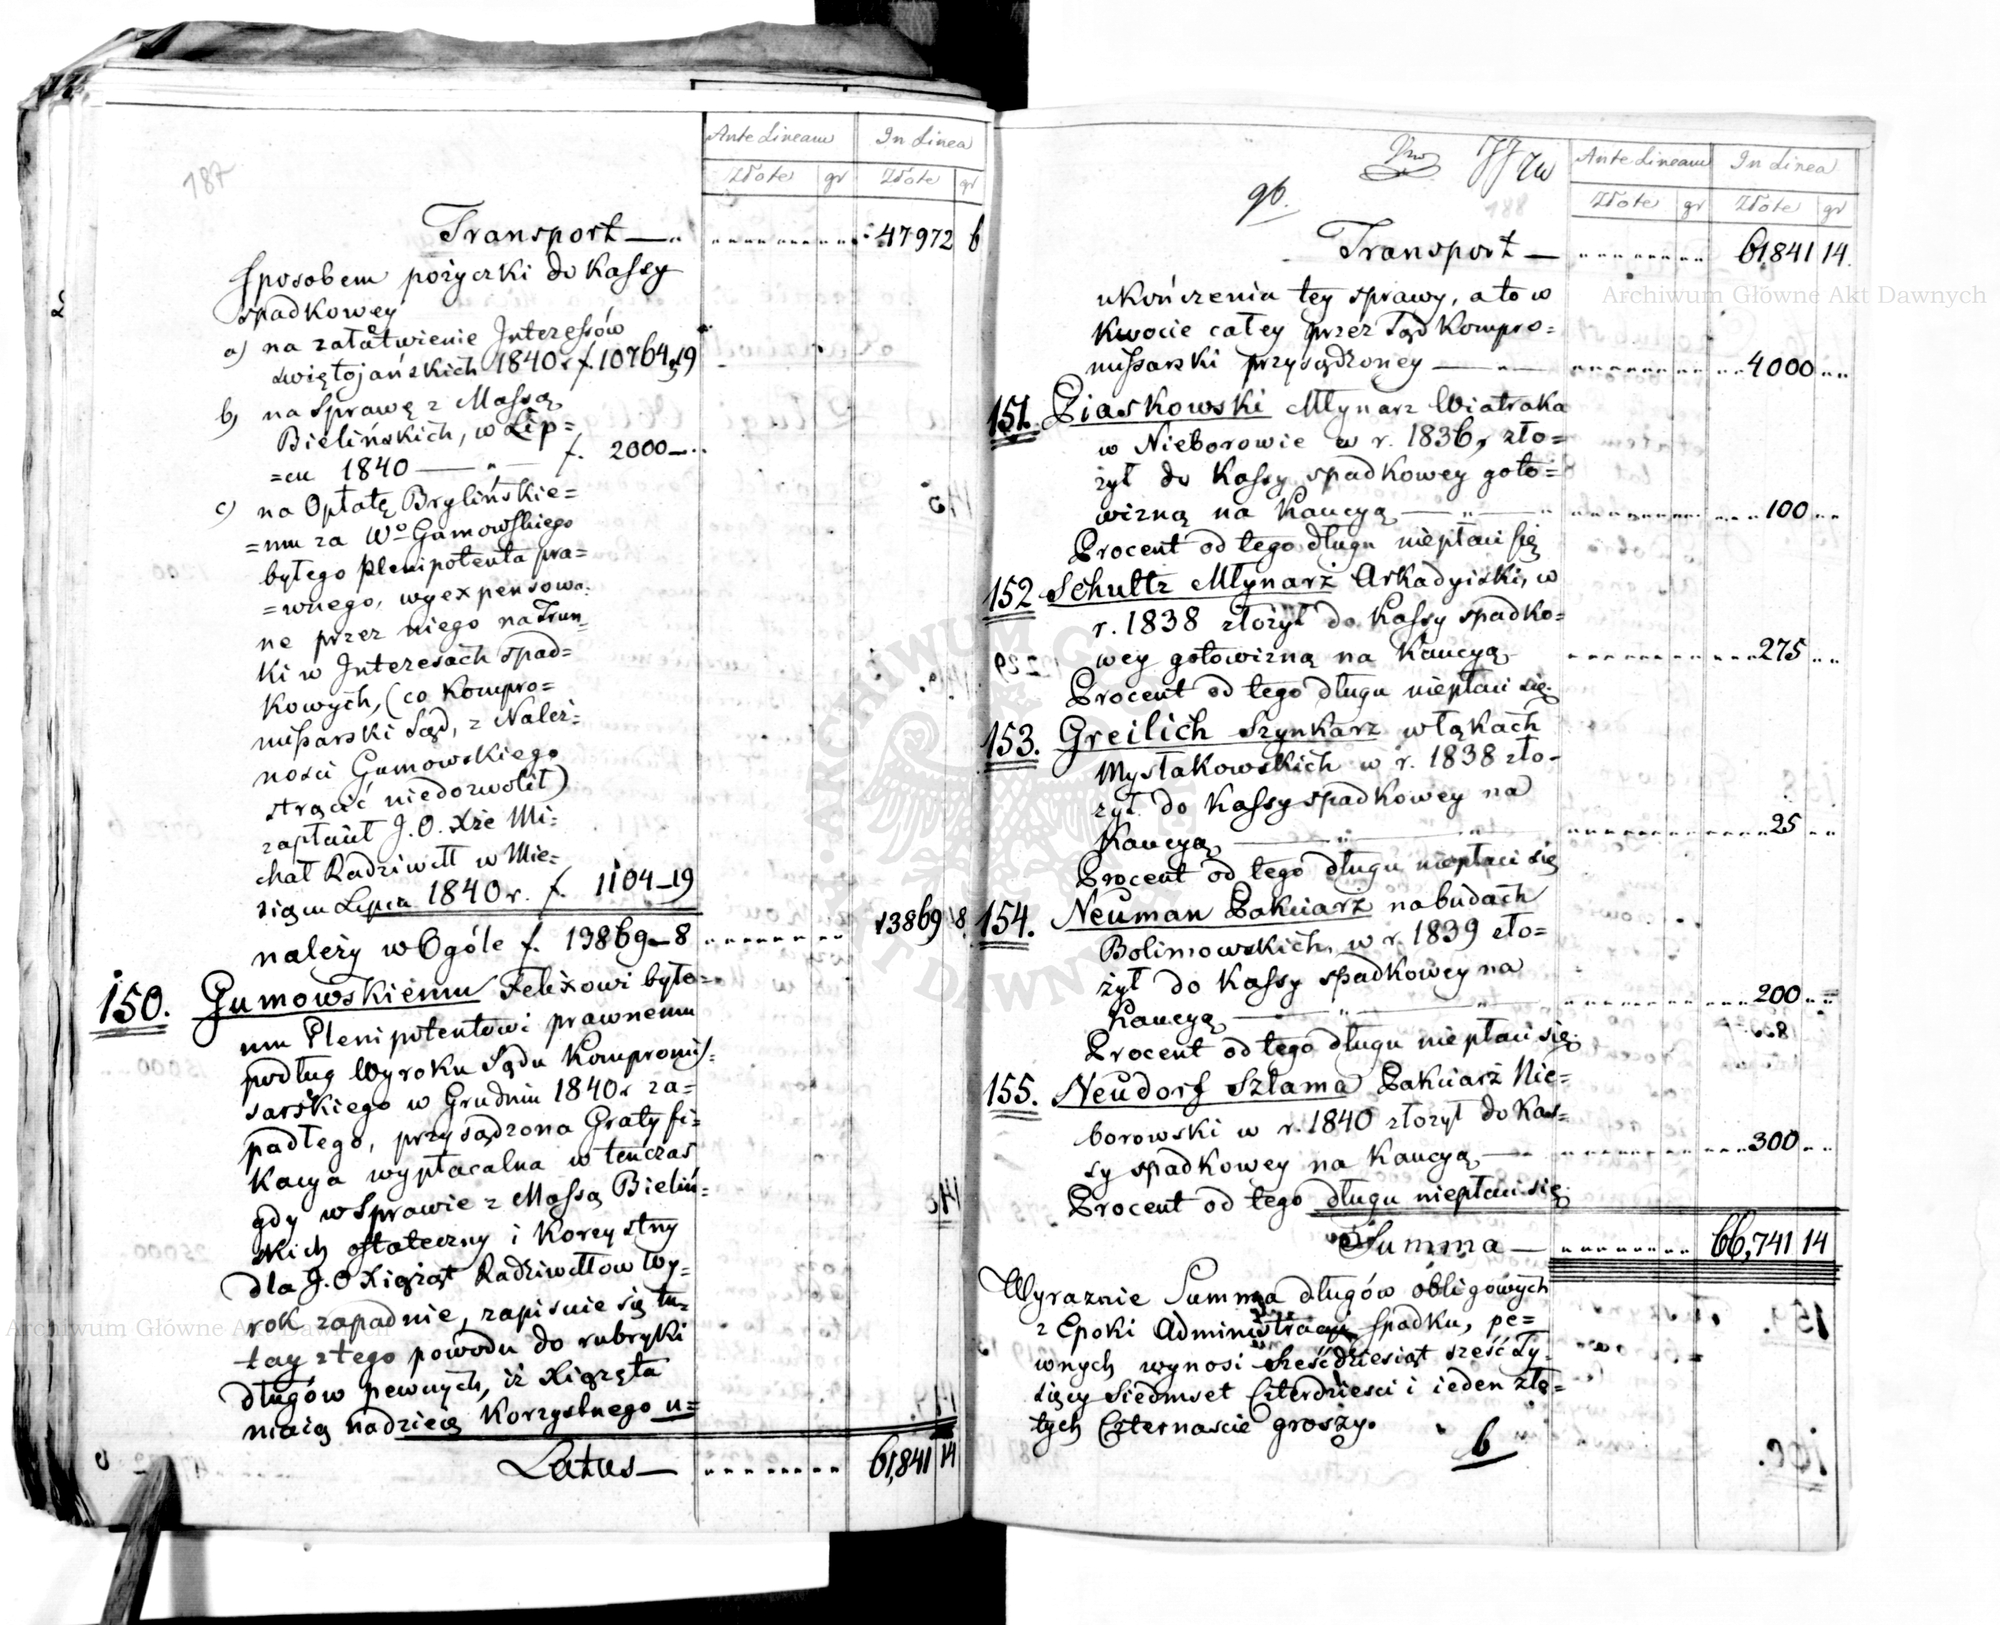 187
Ante Lineam In Linea
Złote gr Złote gr
Transport 47972 6
Sposobem pożyczki do Kassy
spadkowey
a) na załatwienie Interessów
Świętojańskich 1840 r f. 10764,19
b) na Sprawę z Massą
Bielińskich, w Lip=
=cu 1840 — " — f. 2000—..
c) na Opłatę Brylińskie=
=mu za Wo Gumowskiego
byłego Plenipotenta pra=
=wnego, wyexpensowa:
ne przez niego na Trun
ki w Interesach spad=
kowych, (co Kompro=
missarski Sąd, z Należ=
ności Gumowskiego
strącić niedozwolił)
zapłacił J. O. Xże Mi=
chał Radziwiłł w Mie=
siącu Lipcu 1840 r. f. 1104—19
należy w Ogóle f. 13869—8 13869 8
150. Gumowskiemu Felixowi byłe=
mu Plenipotentowi prawnemu
podług Wyroku Sądu Kompromis=
sarskiego w Grudniu 1840 r za=
padłego, przysądzona Gratyfi=
kacya wypłacalna w tenczas
gdy w Sprawie z Massą Bieliń=
skich ostateczny i Korzystny
dla J. O Xiążąt Radziwiłłow Wy=
rok zapadnie, zapisuie się tu=
tay z tego powodu do rubryki
długów pewnych, iż Xiążęta
maią nadzieię Korzystnego u=
Latus— 61,841 14
96.
188
Ante Lineam In Linea
Złote gr Złote gr
Transport — 61841 14.
ukończenia tey sprawy, a to w
Kwocie całey przez Sąd Kompro=
missarski przysądzoney — 4000
151. Piaskowski Młynarz Wiatraka
w Nieborowie w r. 1836, zło=
żył do Kassy spadkowey goto=
wizną na Kaucyą — " — 100
Procent od tego długu niepłaci się
152 Schultz Młynarz Arkadyiski, w
r. 1838 złożył do Kassy spadko=
wey gotowizną na Kaucyą 275
Procent od tego długu niepłaci się.
153. Greilich Szynkarz w Łąkach
Mysłakowskich w r. 1838 zło=
żył do Kassy spadkowey na
Kaucyą — " — 25
Procent od tego długu niepłaci się
154. Neuman Pakciarz na budach
Bolimowskich, w r. 1839 zło=
żył do Kassy spadkowey na
Kaucyą — " — 200
Procent od tego długu niepłaci się.
155. Neudorf Szlama Pakciarz Nie=
borowski w r. 1840 złożył do Kas=
sy spadkowey na Kaucyą — 300
Procent od tego długu niepłaci się.
Summa — 66,741 14
Wyraznie Summa długów obligowych
z Epoki Administracyi spadku, pe=
wnych wynosi Sześćdziesiąt sześć Ty=
sięcy Siedmset Czterdziesci i ieden zło=
tych Czternascie groszy.
6
Archiwum Główne Akt Dawnych
Archiwum Główne Akt Dawnych